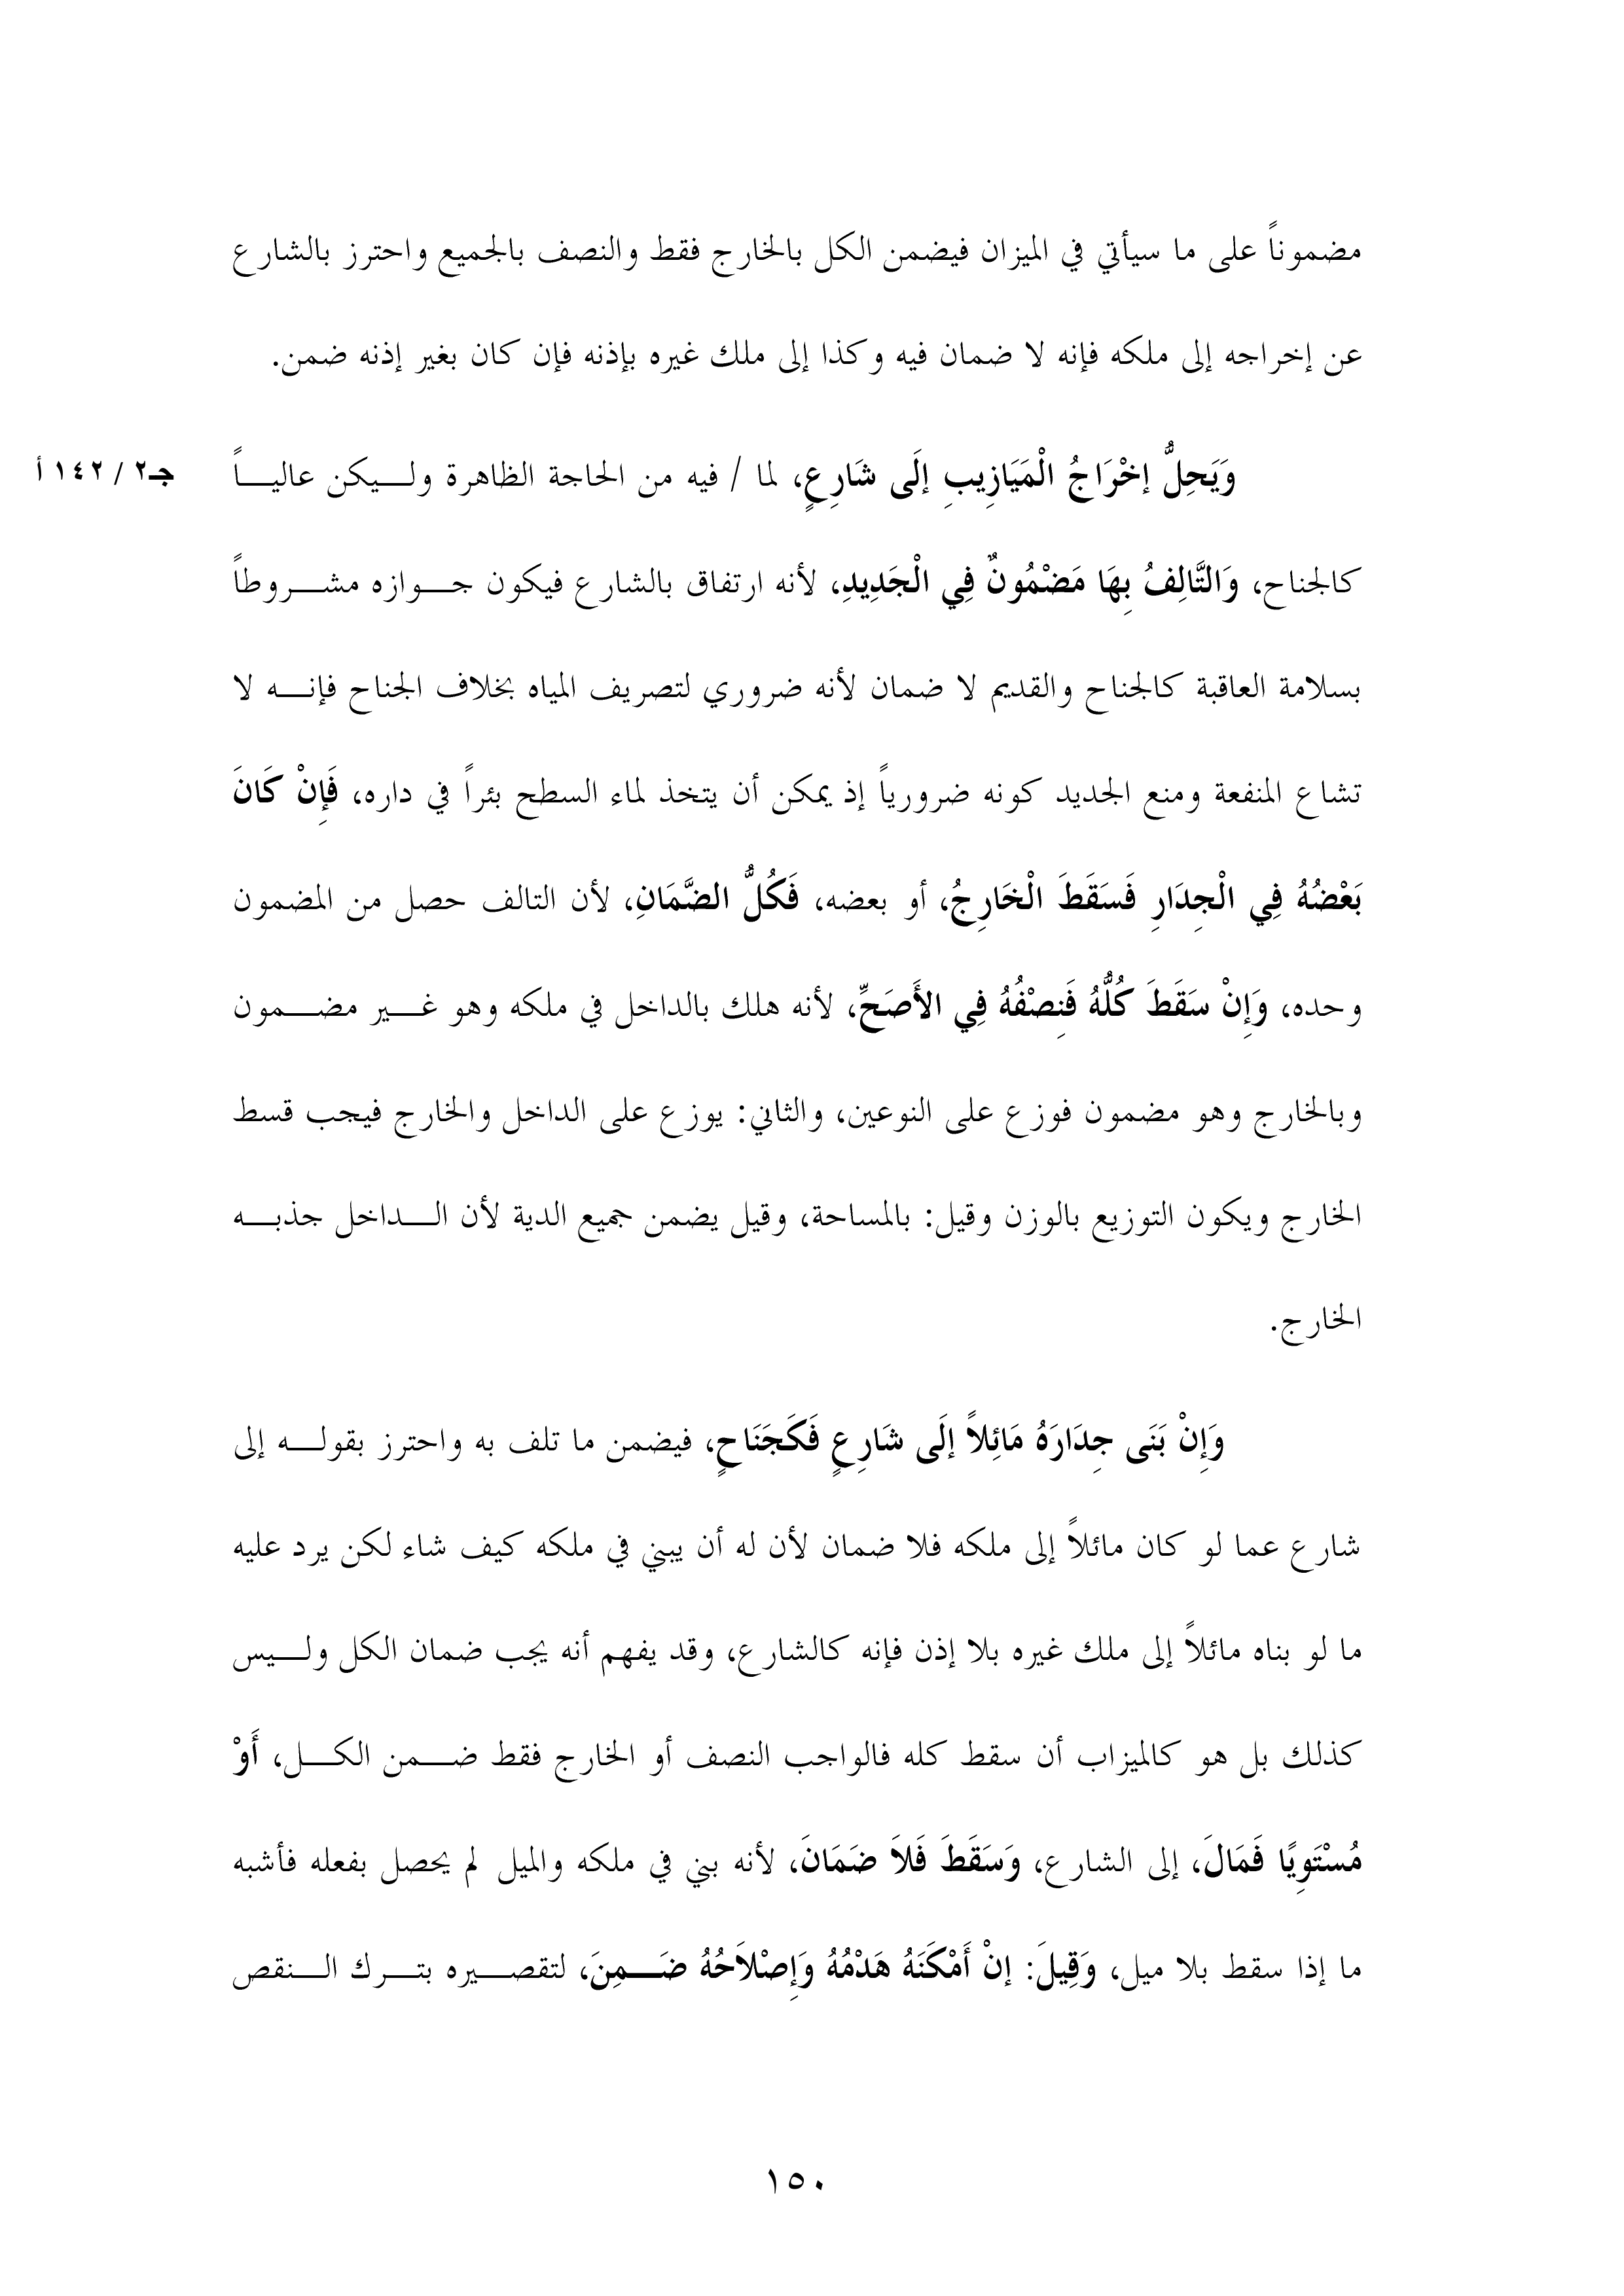 مضموناً على ما سيأتي في الميزان فيضمن الكل بالخارج فقط والنصف بالجميع واحترز بالشارع
عن إخراجه إلى ملكه فإنه لا ضمان فيه وكذا إلى ملك غيره بإذنه فإن كان بغير إذنه ضمن.
وَيَحِلُّ إخْرَاجُ الْمَيَازِيبِ إلَى شَارِعٍ، لما / فيه من الحاجة الظاهرة ولـيكن عاليـاً
جـ٢ / ١٤٢ أ
كالجناح، وَالتَّالِفُ بِهَا مَضْمُونٌ فِي الْجَدِيدِ، لأنه ارتفاق بالشارع فيكون جـوازه مشـروطاً
بسلامة العاقبة كالجناح والقديم لا ضمان لأنه ضروري لتصريف المياه بخلاف الجناح فإنـه لا
تشاع المنفعة ومنع الجديد كونه ضرورياً إذ يمكن أن يتخذ لماء السطح بئراً في داره، فَإِنْ كَانَ
بَعْضُهُ فِي الْجِدَارِ فَسَقَطَ الْخَارِجُ، أو بعضه، فَكُلُّ الضَّمَانِ، لأن التالف حصل من المضمون
وحده، وَإِنْ سَقَطَ كُلُّهُ فَنِصْفُهُ فِي الأَصَحِّ، لأنه هلك بالداخل في ملكه وهو غـير مضـمون
وبالخارج وهو مضمون فوزع على النوعين، والثاني: يوزع على الداخل والخارج فيجب قسط
الخارج ويكون التوزيع بالوزن وقيل: بالمساحة، وقيل يضمن جميع الدية لأن الـداخل جذبـه
الخارج.
وَإِنْ بَنَى جِدَارَهُ مَائِلاً إلَى شَارِعٍ فَكَجَنَاحٍ، فيضمن ما تلف به واحترز بقولـه إلى
شارع عما لو كان مائلاً إلى ملكه فلا ضمان لأن له أن يبني في ملكه كيف شاء لكن يرد عليه
ما لو بناه مائلاً إلى ملك غيره بلا إذن فإنه كالشارع، وقد يفهم أنه يجب ضمان الكل ولـيس
كذلك بل هو كالميزاب أن سقط كله فالواجب النصف أو الخارج فقط ضـمن الكـل، أَوْ
مُسْتَوِيًا فَمَالَ، إلى الشارع، وَسَقَطَ فَلاَ ضَمَانَ، لأنه بني في ملكه والميل لم يحصل بفعله فأشبه
ما إذا سقط بلا ميل، وَقِيلَ: إنْ أَمْكَنَهُ هَدْمُهُ وَإِصْلاَحُهُ ضَـمِنَ، لتقصـيره بتـرك الـنقص
١٥٠